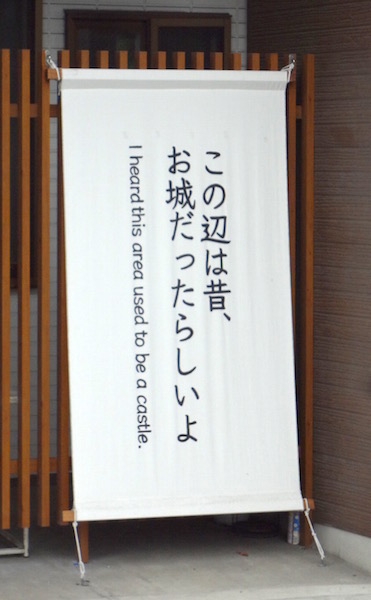 この辺は昔、
お城だったらしいよ
I heard this area used to be a castle.